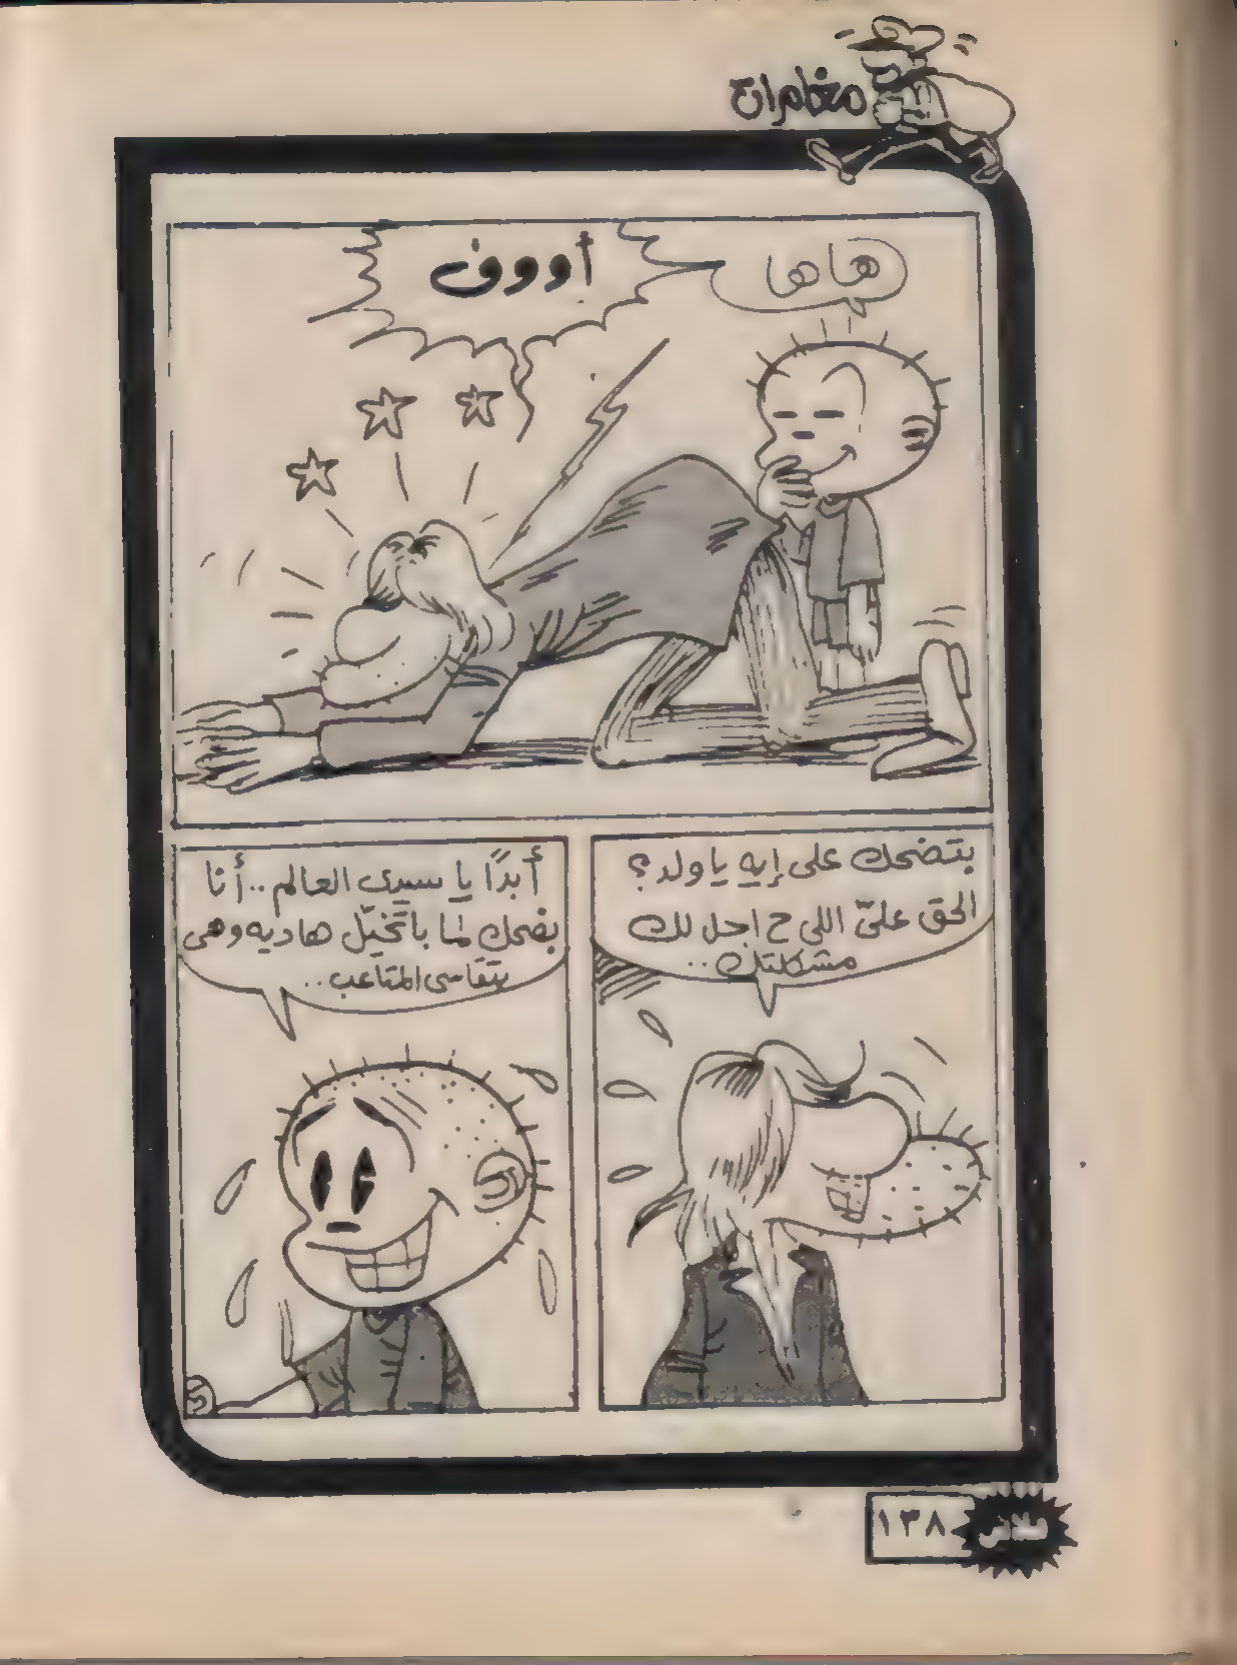 مغامرات
هاها
أووف
بتضحك على إيه يا ولد؟
الحق علىّ اللى ح احل لك
مشكلتك..
أبدًا يا سيدى العالم.. أنا
بضحك لما باتخيّل هاديه وهى
بتقاسى المتاعب..
فلاش
١٣٨